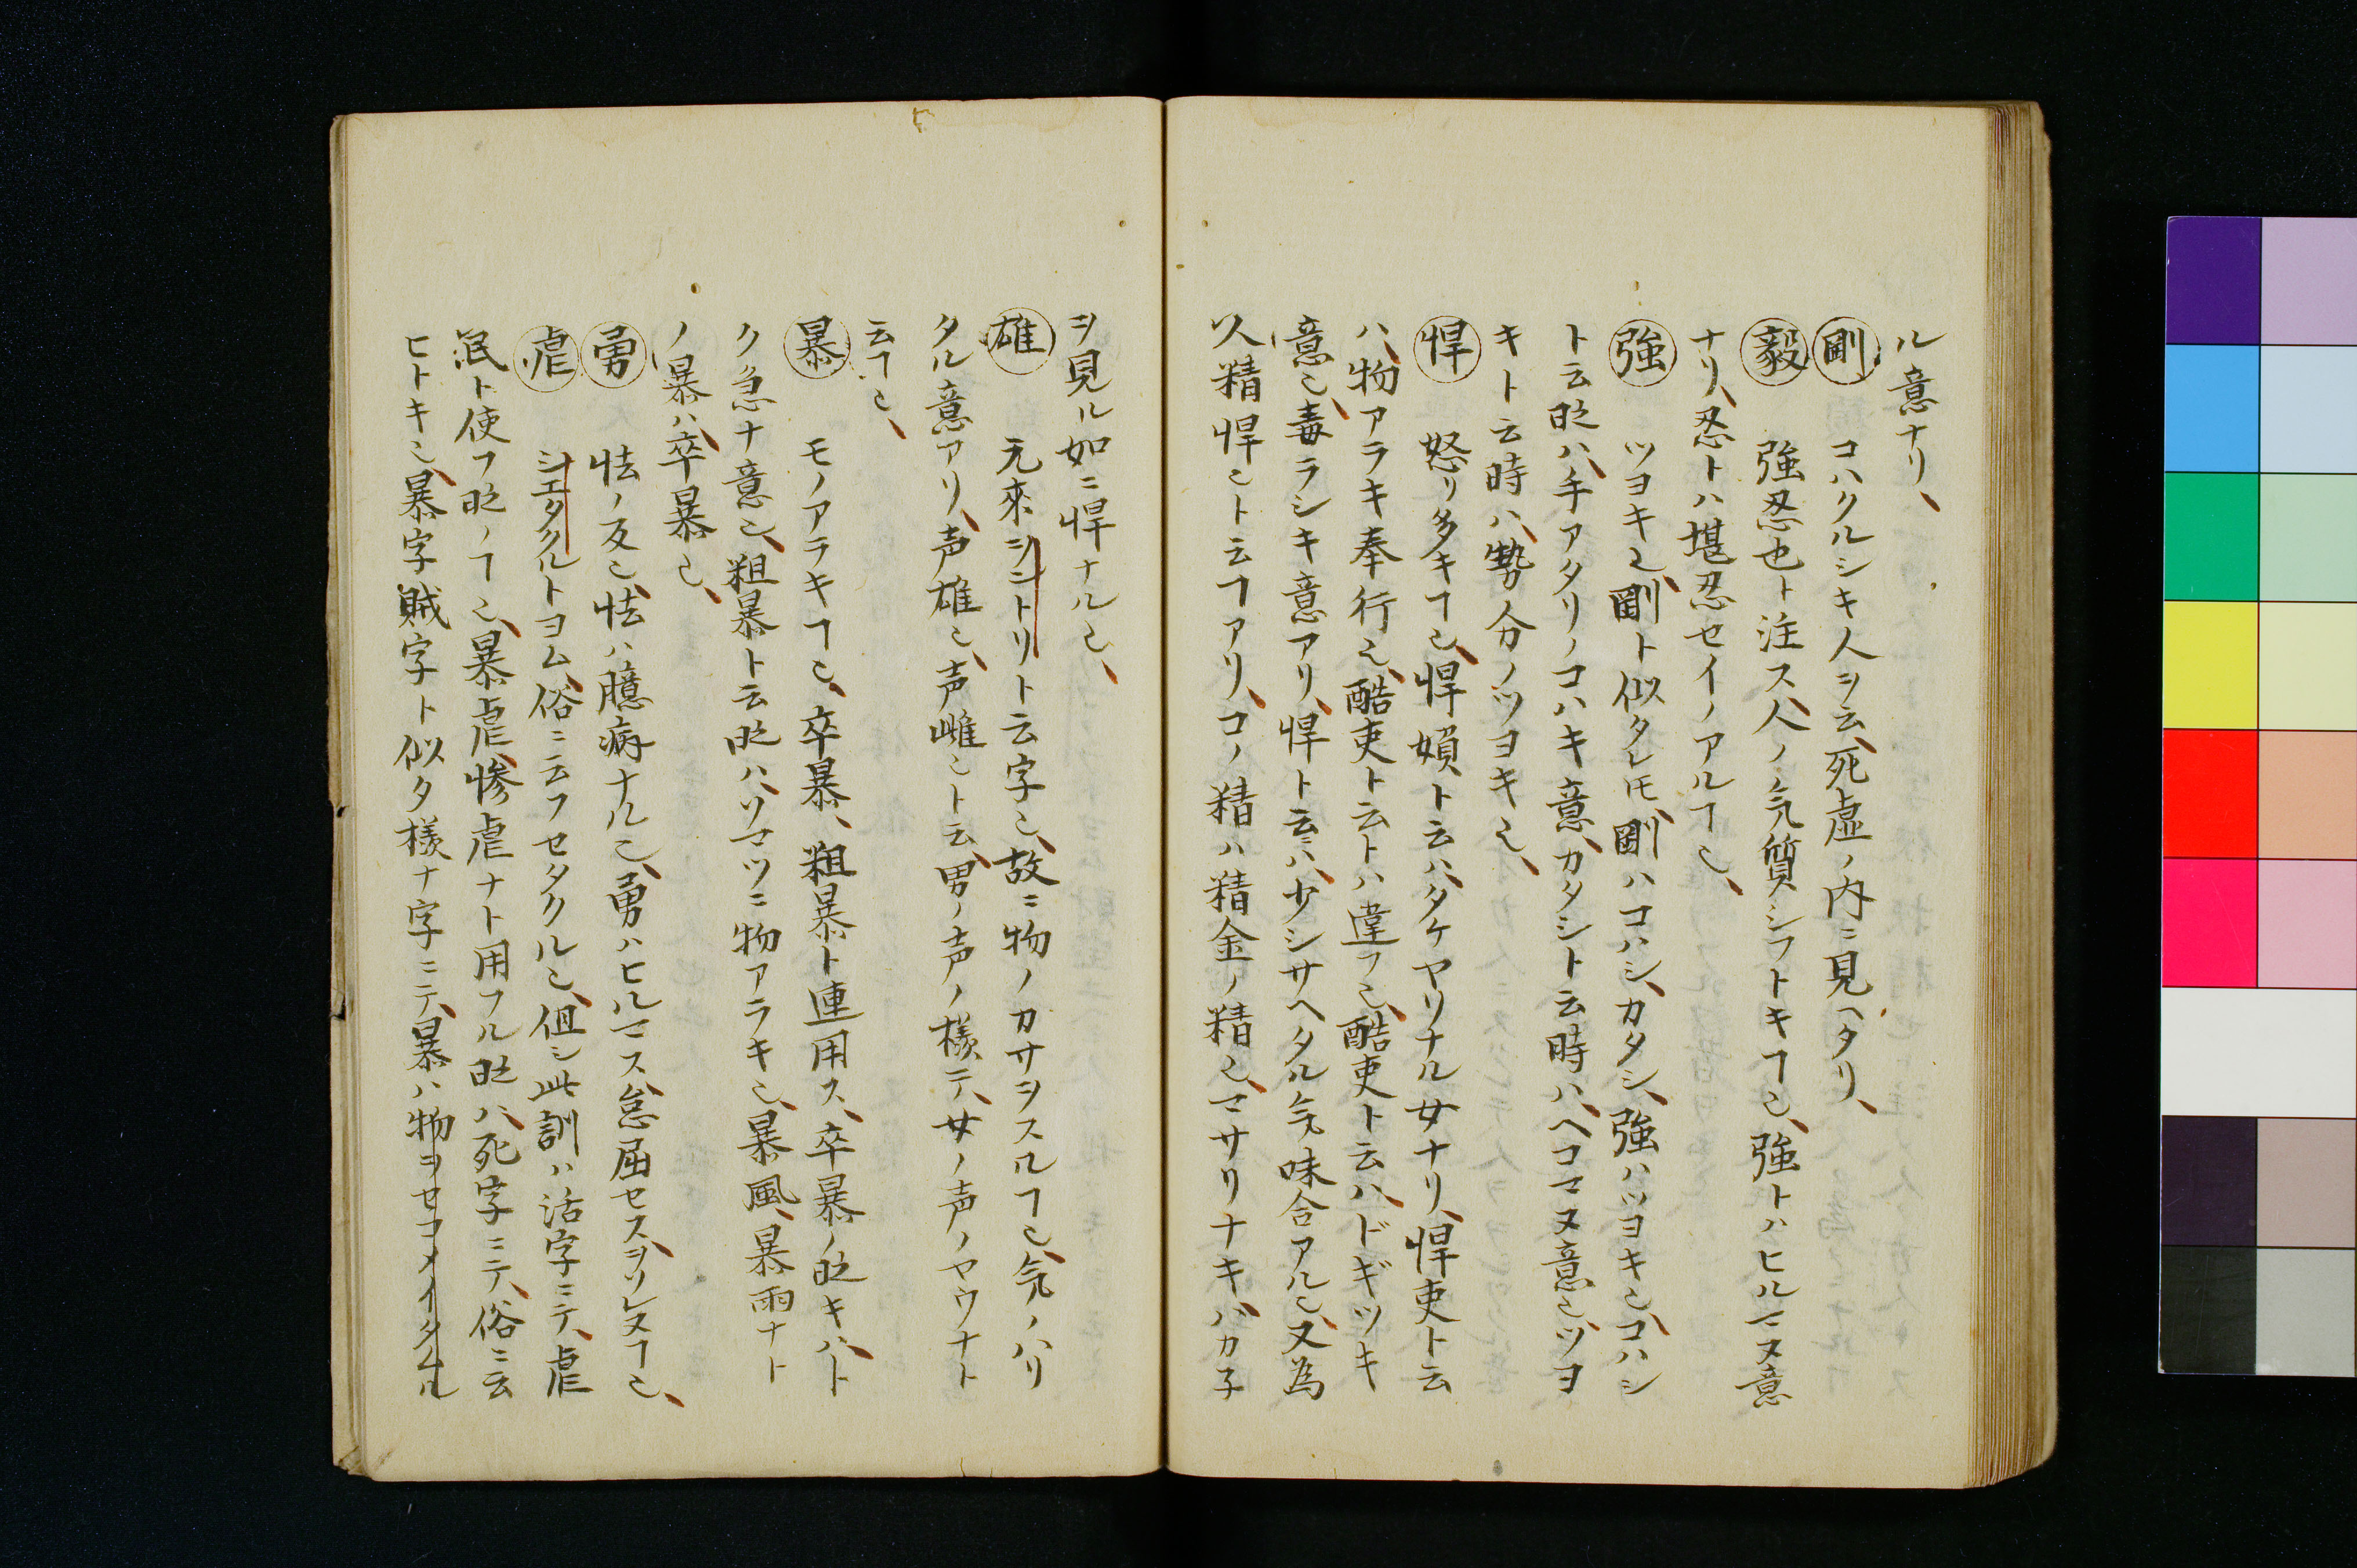 ル意ナリ、
剛 コハクルシキ人ヲ云、死虚ノ内ニ見ヘタリ、
毅 強忍也ト注ス、人ノ気質シフトキヿ也、強トハヒルマヌ意
ナリ、忍トハ堪忍セイノアルヿ也、
強 ツヨキ也、剛ト似タレ𪜈、剛ハコハシ、カタシ、強ハツヨキ也、コハシ
ト云時ハ、手アタリノコハキ意、カタシト云時ハ、ヘコマヌ意也、ツヨ
キト云時ハ、勢分ノツヨキ也、
悍 怒リ多キヿ也、悍婦ト云ハ、タケヤリナル女ナリ、悍吏ト云
ハ、物アラキ奉行也、酷吏ト云トハ違フ也、酷吏ト云ハ、ドギツキ
意也、毒ラシキ意アリ、悍ト云ハ、少シサヘタル気味合アル也、又為
人精悍也ト云ヿアリ、コノ精ハ精金ノ精也、マサリナキバカ子
ヲ見ル如ニ悍ナル也、
雄 元来ヲントリト云字也、故ニ物ノカサヲスルヿ也、気ノハリ
タル意アリ、声雄也、声雌也ト云、男ノ声ノ様ニテ、女ノ声ノヤウナト
云ヿ也、
暴 モノアラキヿ也、卒暴、粗暴ト連用ス、卒暴ノ時キハ、ト
ク急ナ意也、粗暴ト云時ハ、ソマツニ物アラキ也、暴風、暴雨ナト
ノ暴ハ、卒暴也、
勇 怯ノ反也、怯ハ臆病ナル也、勇ハヒルマス、怠屈セス、ヲソレヌヿ也、
虐 シエタクルトヨム、俗ニ云フセタクル也、但シ此訓ハ活字ニテ、虐
民ト使フ時ノヿ也、暴虐、惨虐ナト用フル時ハ、死字ニテ、俗ニ云
ヒトキ也、暴字賊字ト似タ様ナ字ニテ、暴ハ物ヲセコメイタムル